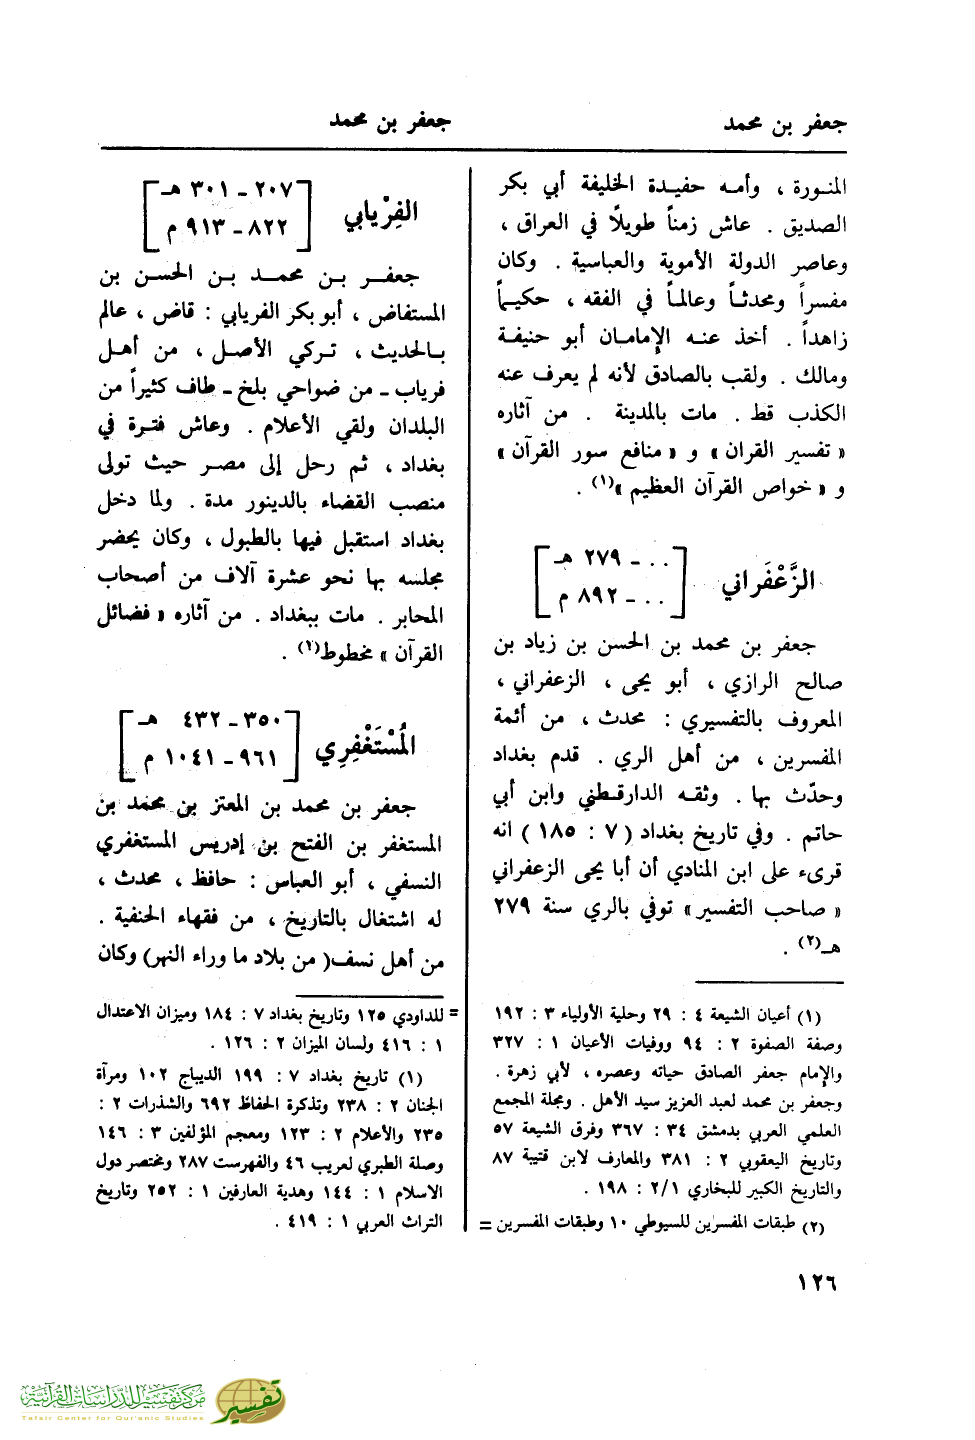 جعفر بن محمد
جعفر بن محمد
المنورة ، وأمه حفيدة الخليفة أبي بكر
الصديق . عاش زمناً طويلاً في العراق ،
وعاصر الدولة الأموية والعباسية . وكان
مفسراً ومحدثاً وعالماً في الفقه ، حكيماً
زاهداً . أخذ عنه الإمامان أبو حنيفة
ومالك . ولقب بالصادق لأنه لم يعرف عنه
الكذب قط . مات بالمدينة . من آثاره
« تفسير القران » و « منافع سور القرآن »
و « خواص القرآن العظيم »(١) .
الزَّعْفَراني
[ . . . ـ ٢٧٩ هـ
. . . ـ ٨٩٢ م ]
جعفر بن محمد بن الحسن بن زياد بن
صالح الرازي ، أبو يحيى ، الزعفراني ،
المعروف بالتفسيري : محدث ، من أئمة
المفسرين ، من أهل الري . قدم بغداد
وحدّث بها . وثقه الدارقطني وابن أبي
حاتم . وفي تاريخ بغداد ( ٧ : ١٨٥ ) انه
قرىء على ابن المنادي أن أبا يحيى الزعفراني
« صاحب التفسير » توفي بالري سنة ٢٧٩
هـ(٢) .
(١) أعيان الشيعة ٤ : ٢٩ وحلية الأولياء ٣ : ١٩٢
وصفة الصفوة ٢ : ٩٤ ووفيات الأعيان ١ : ٣٢٧
والإمام جعفر الصادق حياته وعصره ، لأبي زهرة .
وجعفر بن محمد لعبد العزيز سيد الأهل . ومجلة المجمع
العلمي العربي بدمشق ٣٤ : ٣٦٧ وفرق الشيعة ٥٧
وتاريخ اليعقوبي ٢ : ٣٨١ والمعارف لابن قتيبة ٨٧
والتاريخ الكبير للبخاري ٢/١ : ١٩٨ .
(٢) طبقات المفسرين للسيوطي ١٠ وطبقات المفسرين =
الفِرْيابي
[ ٢٠٧ ـ ٣٠١ هـ
٨٢٢ ـ ٩١٣ م ]
جعفر بن محمد بن الحسن بن
المستفاض ، أبو بكر الفريابي : قاض ، عالم
بالحديث ، تركي الأصل ، من أهل
فرياب ـ من ضواحي بلخ ـ طاف كثيراً من
البلدان ولقي الأعلام . وعاش فترة في
بغداد ، ثم رحل إلى مصر حيث تولى
منصب القضاء بالدينور مدة . ولما دخل
بغداد استقبل فيها بالطبول ، وكان يحضر
مجلسه بها نحو عشرة آلاف من أصحاب
المحابر . مات ببغداد . من آثاره « فضائل
القرآن » مخطوط(١) .
المُسْتَغْفِري
[ ٣٥٠ ـ ٤٣٢ هـ
٩٦١ ـ ١٠٤١ م ]
جعفر بن محمد بن المعتز بن محمد بن
المستغفر بن الفتح بن إدريس المستغفري
النسفي ، أبو العباس : حافظ ، محدث ،
له اشتغال بالتاريخ ، من فقهاء الحنفية .
من أهل نسف( من بلاد ما وراء النهر) وكان
= للداودي ١٢٥ وتاريخ بغداد ٧ : ١٨٤ وميزان الاعتدال
١ : ٤١٦ ولسان الميزان ٢ : ١٢٦ .
(١) تاريخ بغداد ٧ : ١٩٩ الديباج ١٠٢ ومرآة
الجنان ٢ : ٢٣٨ وتذكرة الحفاظ ٦٩٢ والشذرات ٢ :
٢٣٥ والأعلام ٢ : ١٢٣ ومعجم المؤلفين ٣ : ١٤٦
وصلة الطبري لعريب ٤٦ والفهرست ٢٨٧ ومختصر دول
الاسلام ١ : ١٤٤ وهدية العارفين ١ : ٢٥٢ وتاريخ
التراث العربي ١ : ٤١٩ .
١٢٦
مركز تفسير للدراسات القرآنية
Tafsir Center for Qur'anic Studies
تفسير